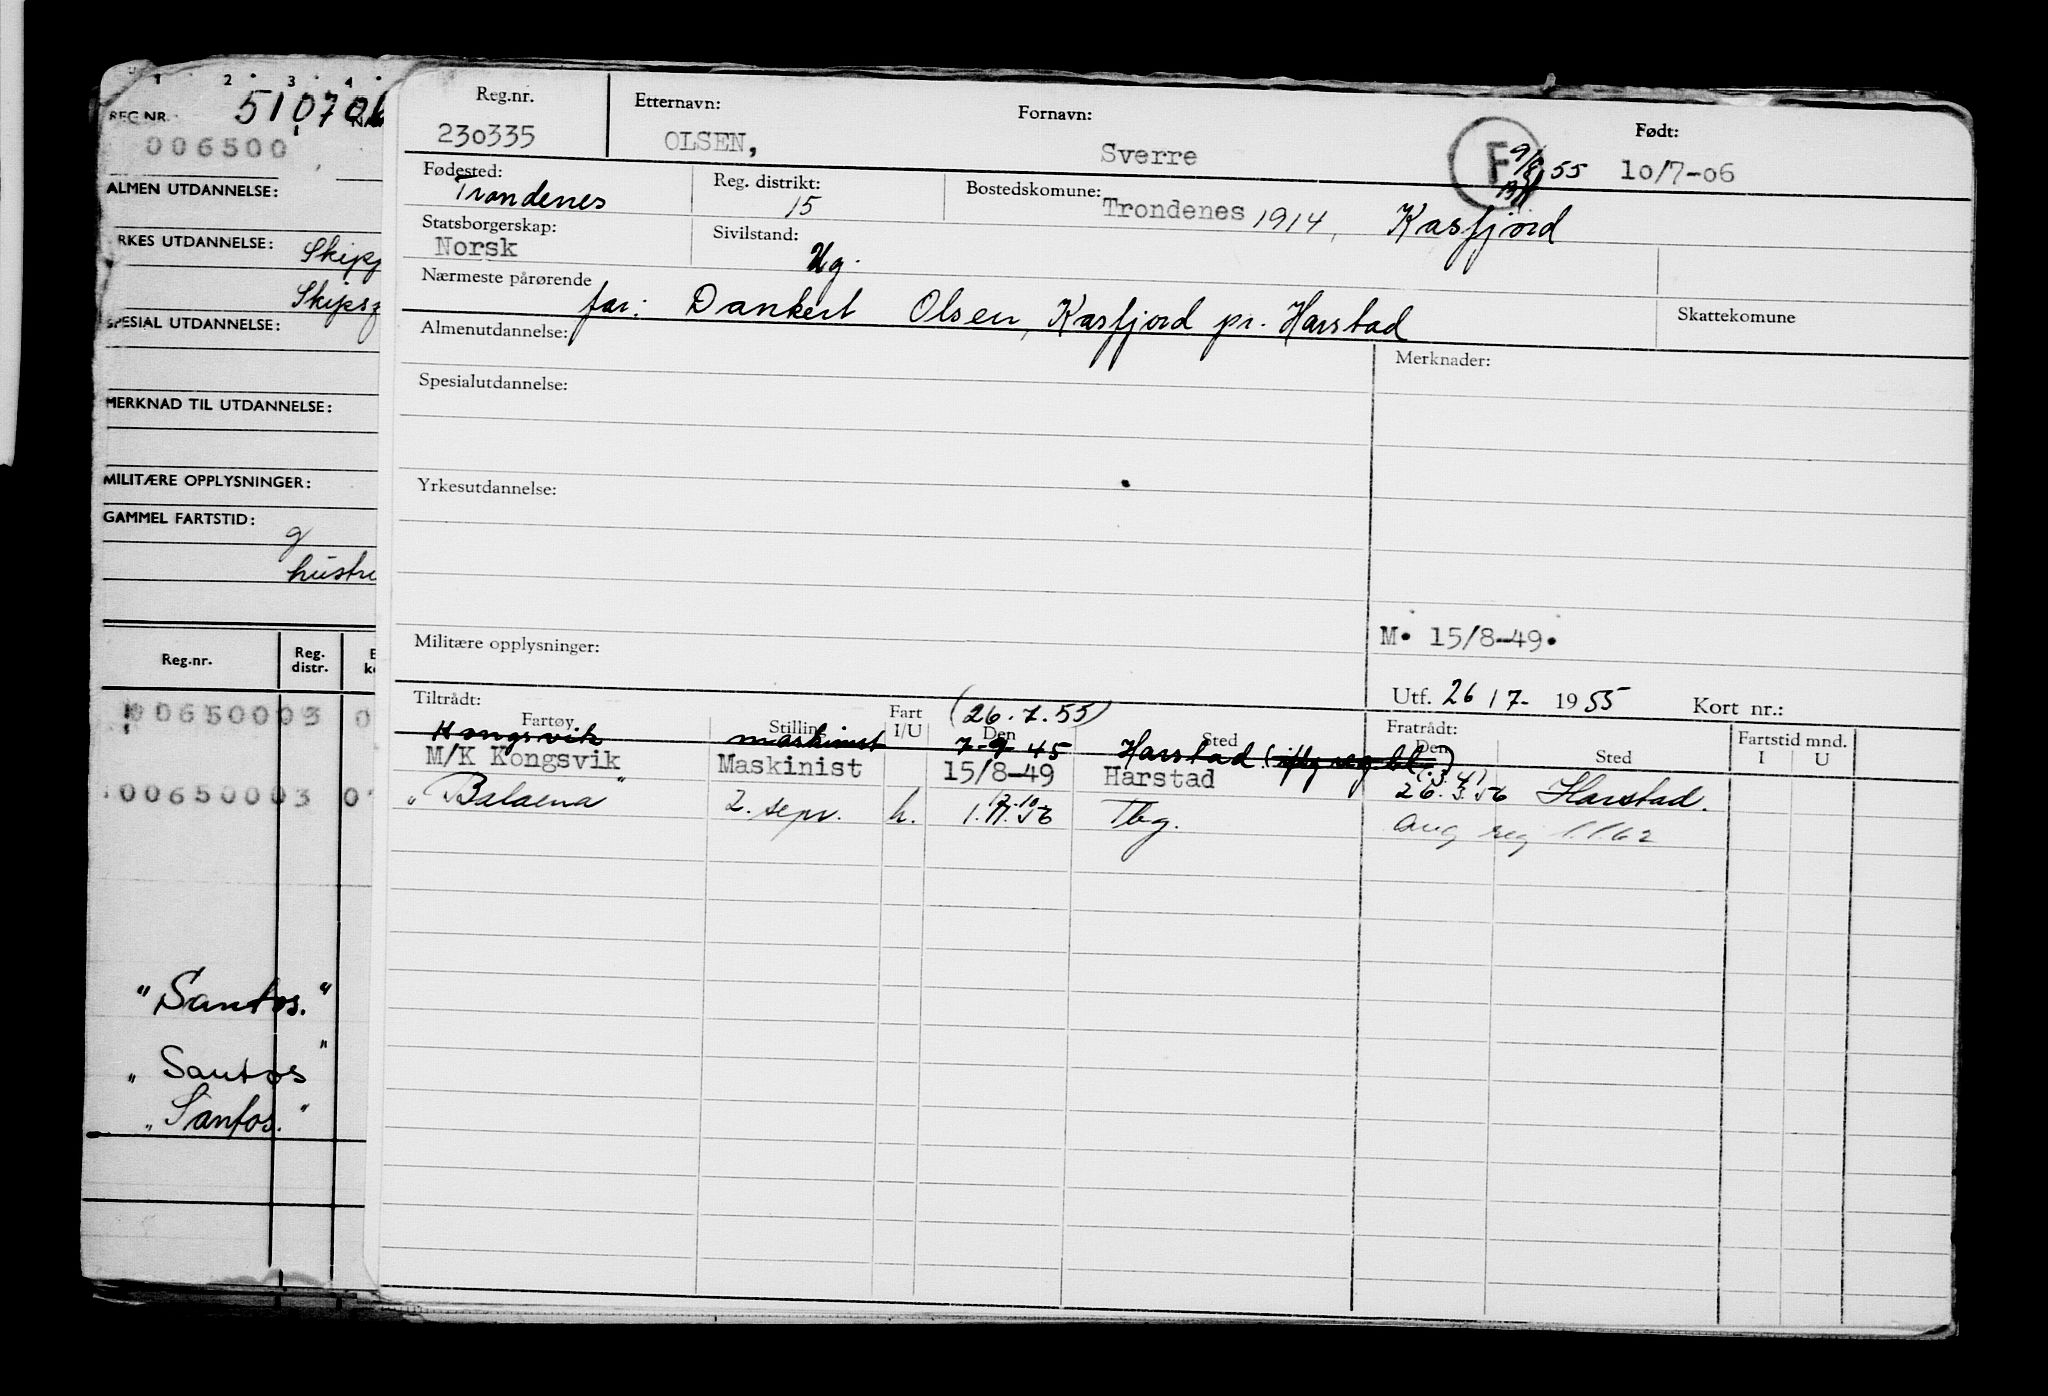 1 2 3 4
REG NR. 510706
006500
ALMEN UTDANNELSE:
RKES UTDANNELSE:
SPESIAL UTDANNELSE:
MERKNAD TIL UTDANNELSE:
MILITÆRE OPPLYSNINGER:
GAMMEL FARTSTID:
g
hustru
Reg.nr. Reg. distr.
00650003 0
00650003 0
"Santos."
"Santos"
"Santos."
Reg.nr. Etternavn: Fornavn: Født:
230335 OLSEN, Sverre F 9/8 55 10/7-06
Fødested: Reg. distrikt: Bostedskomune:
Trondenes 15 Trondenes 1914, Kasfjord
Statsborgerskap: Sivilstand:
Norsk Ug.
Nærmeste pårørende Skattekomune
far: Dankert Olsen, Kasfjord pr. Harstad
Almenutdannelse: Merknader:
Spesialutdannelse:
Yrkesutdannelse:
Militære opplysninger: M. 15/8-49.
Utf. 26/7- 1955 Kort nr.:
Tiltrådt: Fart (26.7.55) Fratrådt: Fartstid mnd.
Fartøy Stilling I/U Den Sted Den Sted I U
Kongsvik maskinist 7-9 45 Harstad (iflg reg.bl.)
M/K Kongsvik Maskinist 15/8-49 Harstad 26.3.56 Harstad.
"Balaena" 2. sepr. h. 1.11.56 Tbg. Avg reg 1.1.62
17.10